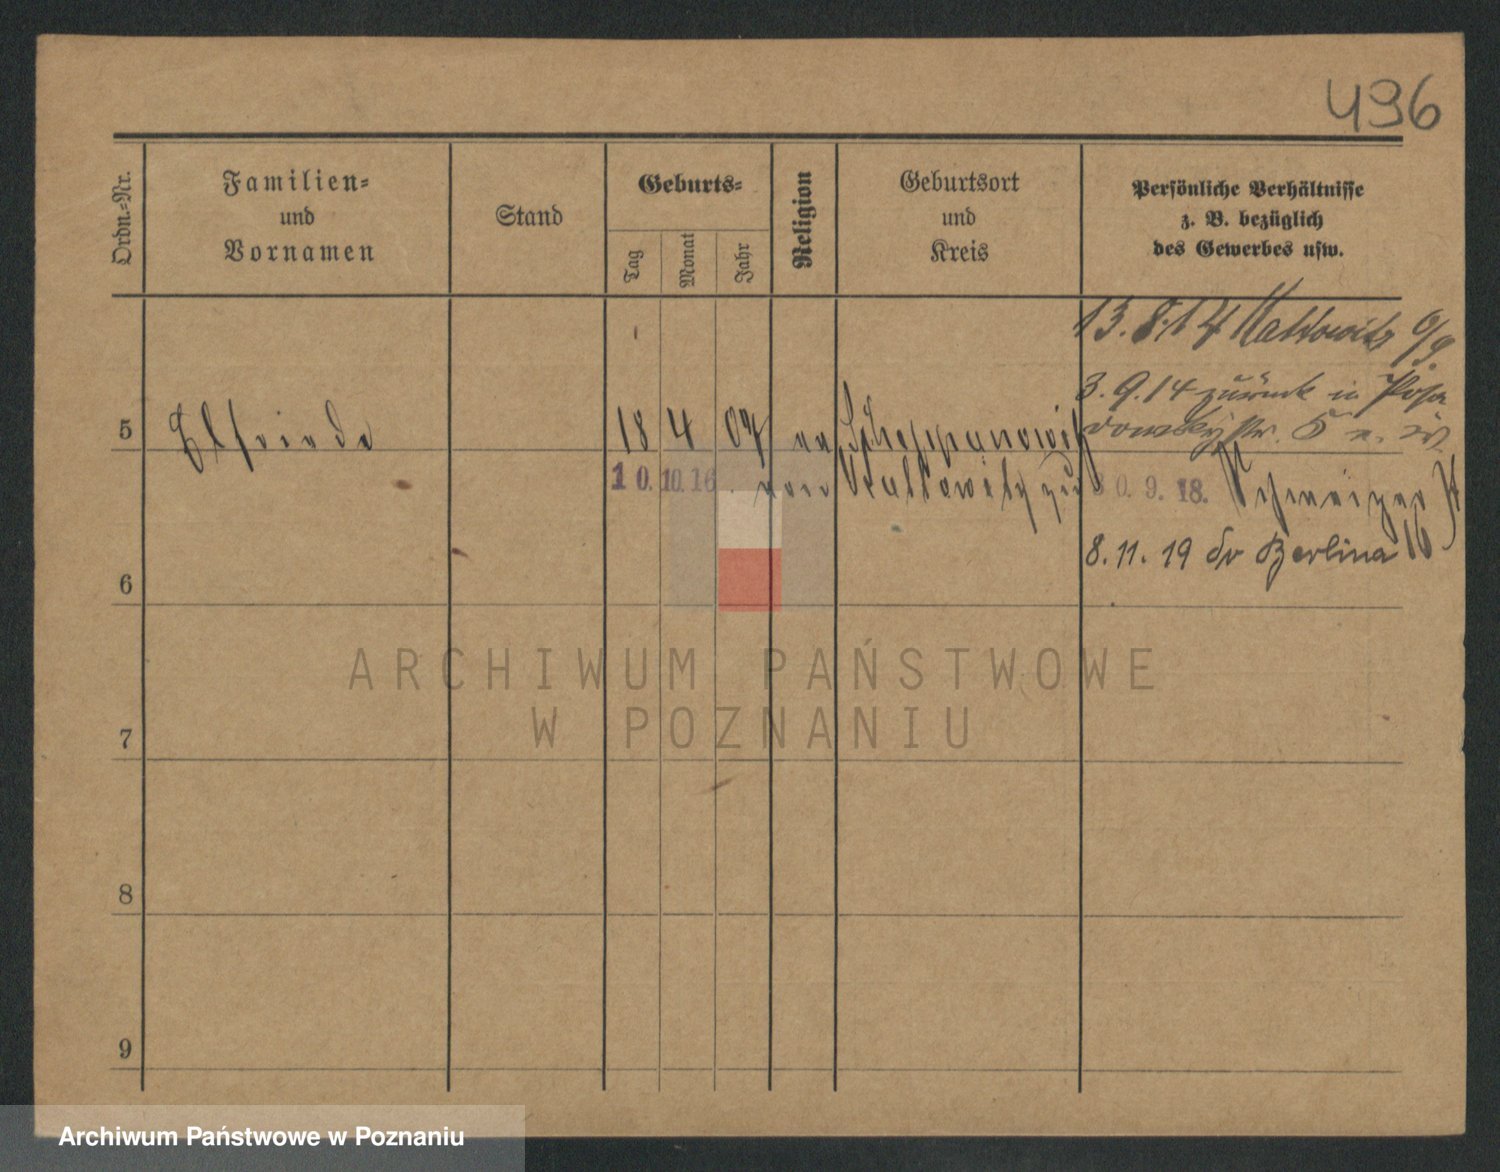 496
Ordn.=Nr.
Familien=
und
Vornamen
Stand
Geburts=
Tag
Monat
Jahr
Religion
Geburtsort
und
Kreis
Persönliche Verhältnisse
z. B. bezüglich
des Gewerbes usw.
13.8.14 Kattowitz O/S.
3.9.14 zurück in Posa
dowskystr. 5 n. W.
5 Elfriede 18 4 07 Schoppinowitz
10.10.16 von Kattowitz zu
0.9.18. Schweizer
16
8.11.19 Berlina
6
7
8
9
ARCHIWUM PAŃSTWOWE
W POZNANIU
Archiwum Państwowe w Poznaniu